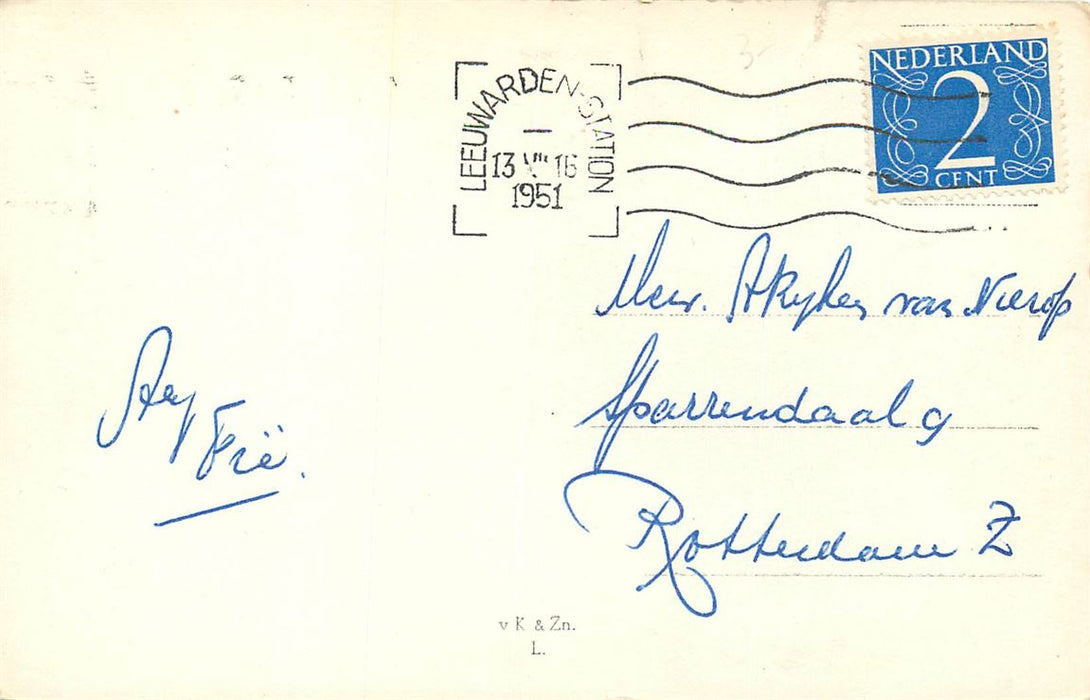 LEEUWARDEN-STATION
13 VIII 16
1951
NEDERLAND
2
CENT
Mevr. van Nierop
Sparrendaal 9
Rotterdam Z
Fië.
v K & Zn.
L.